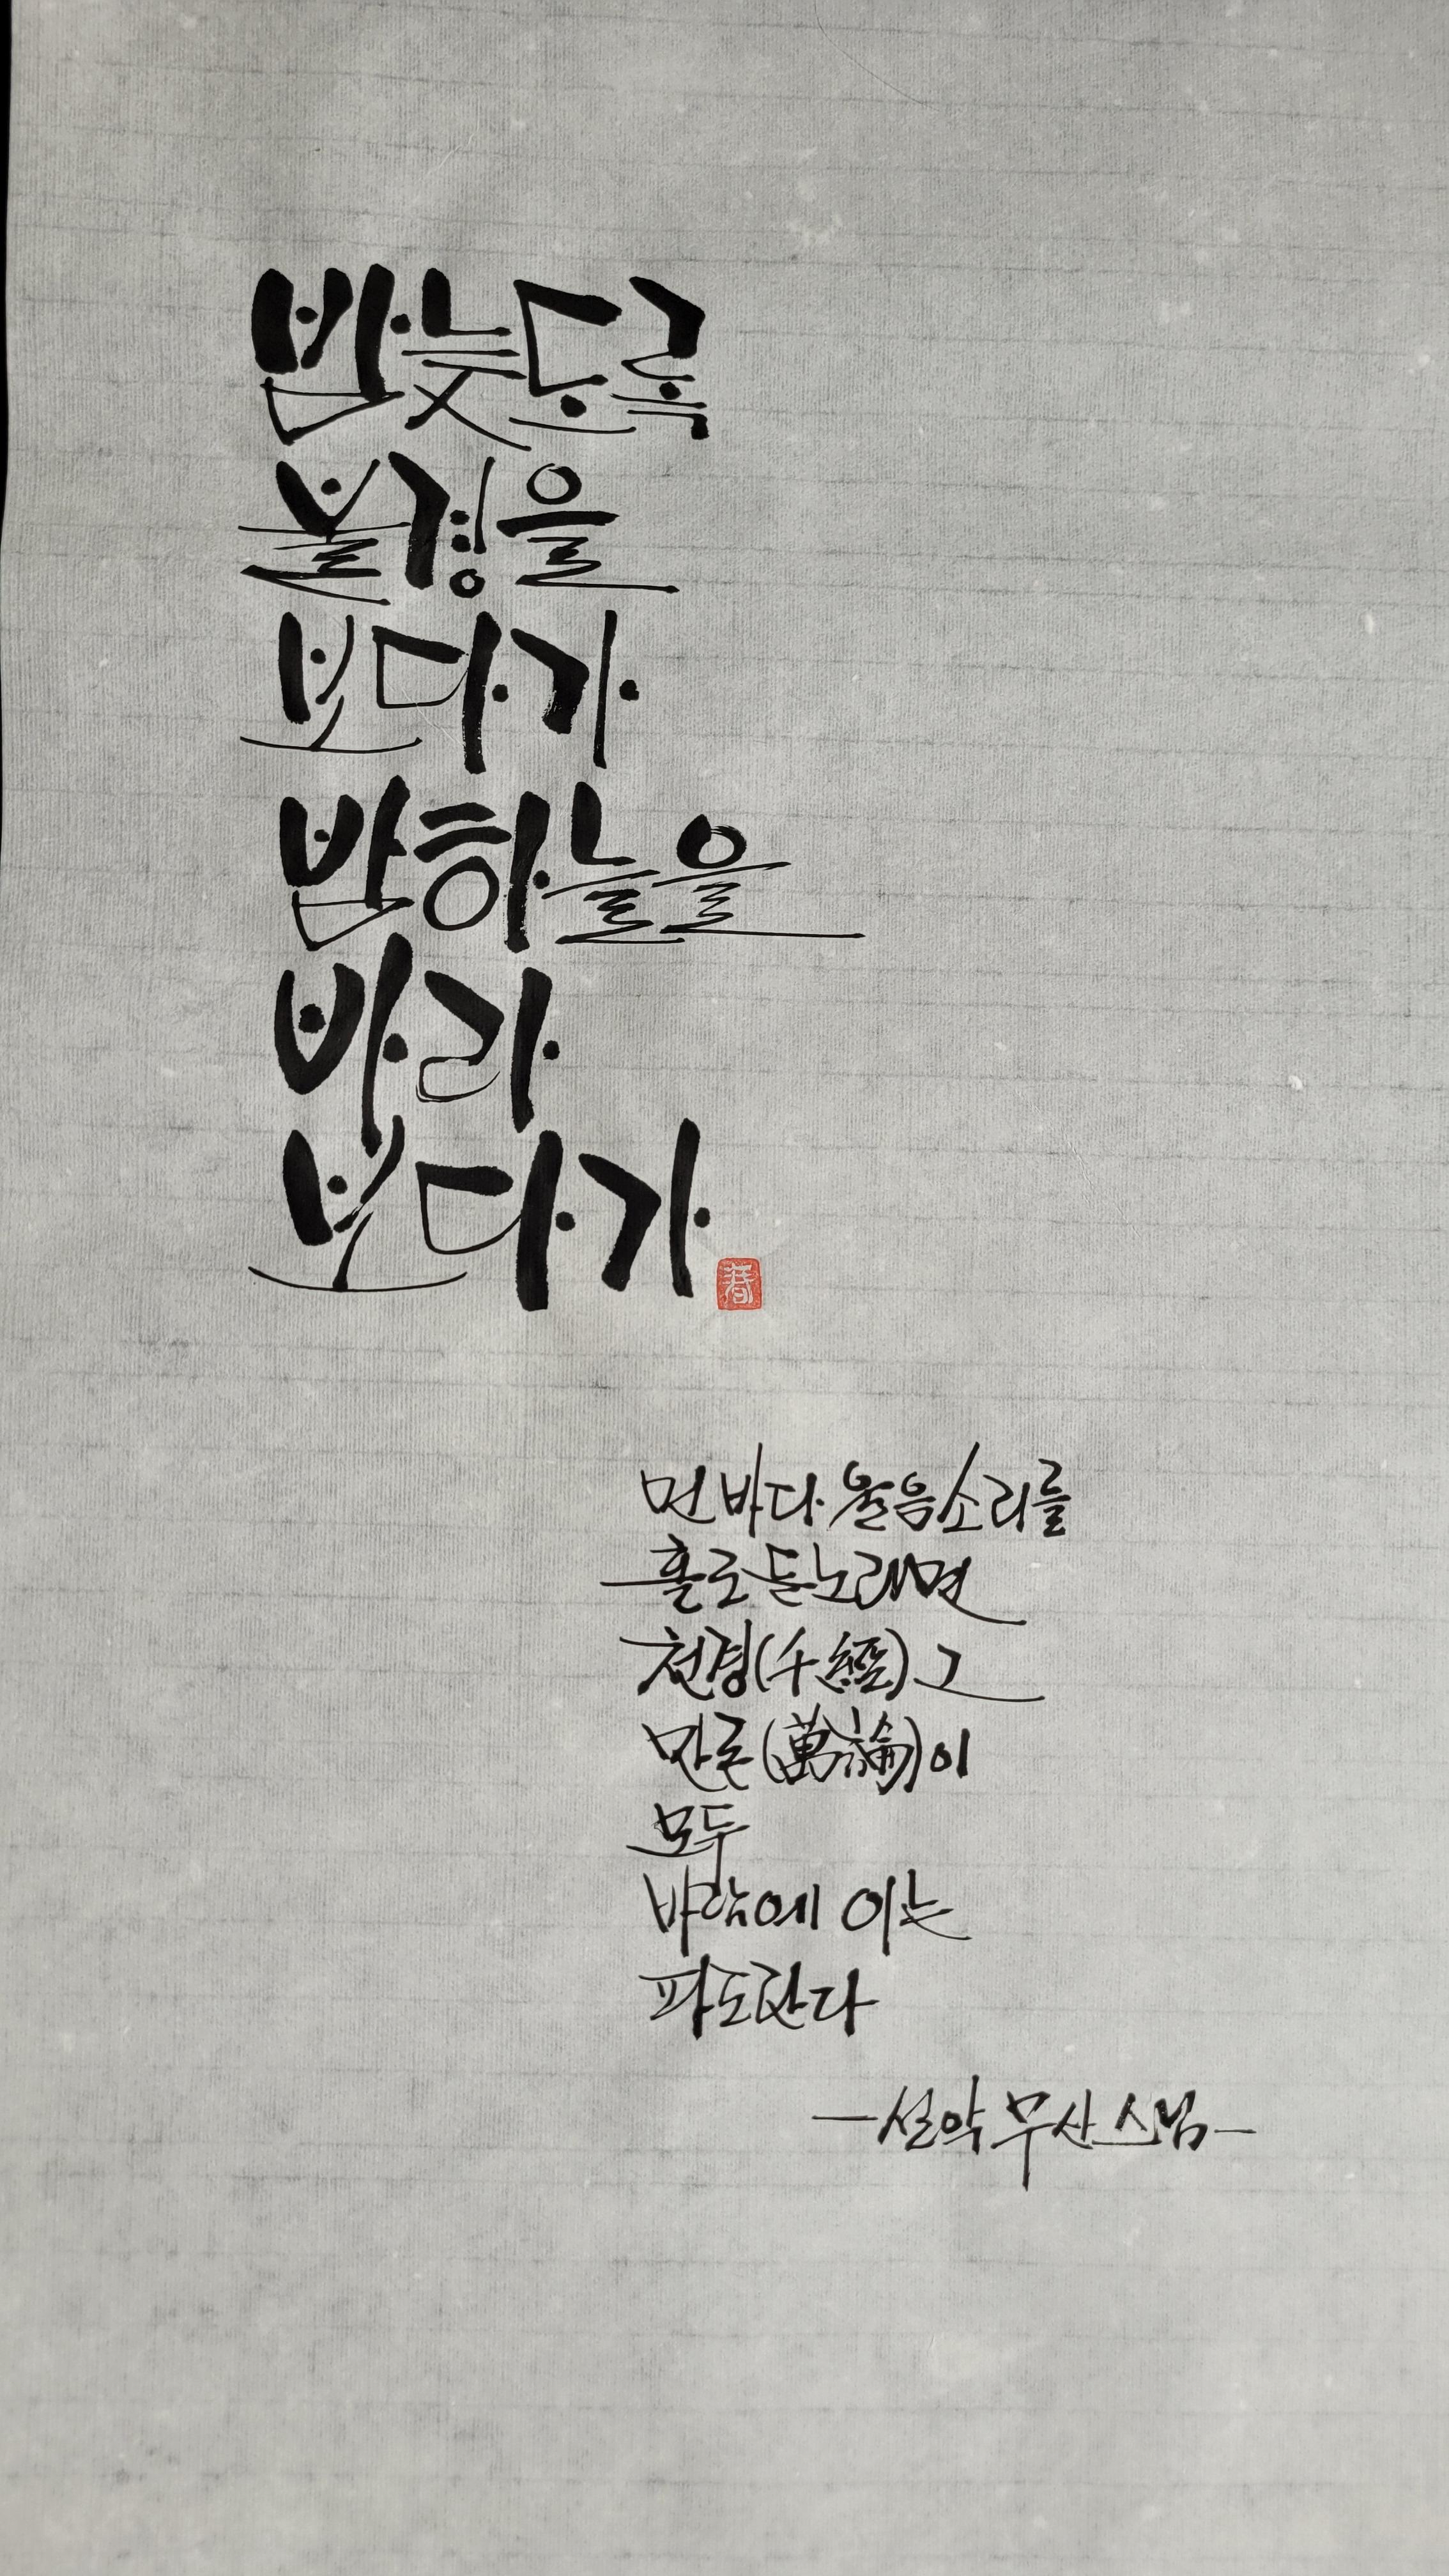 밤늦도록
불경을
보다가
밤하늘을
바라
보다가
春
먼 바다 울음소리를
홀로 듣노라면
천경(千經) 그
만론(萬論)이
모두
바람에 이는
파도란다
-설악 무산 스님-